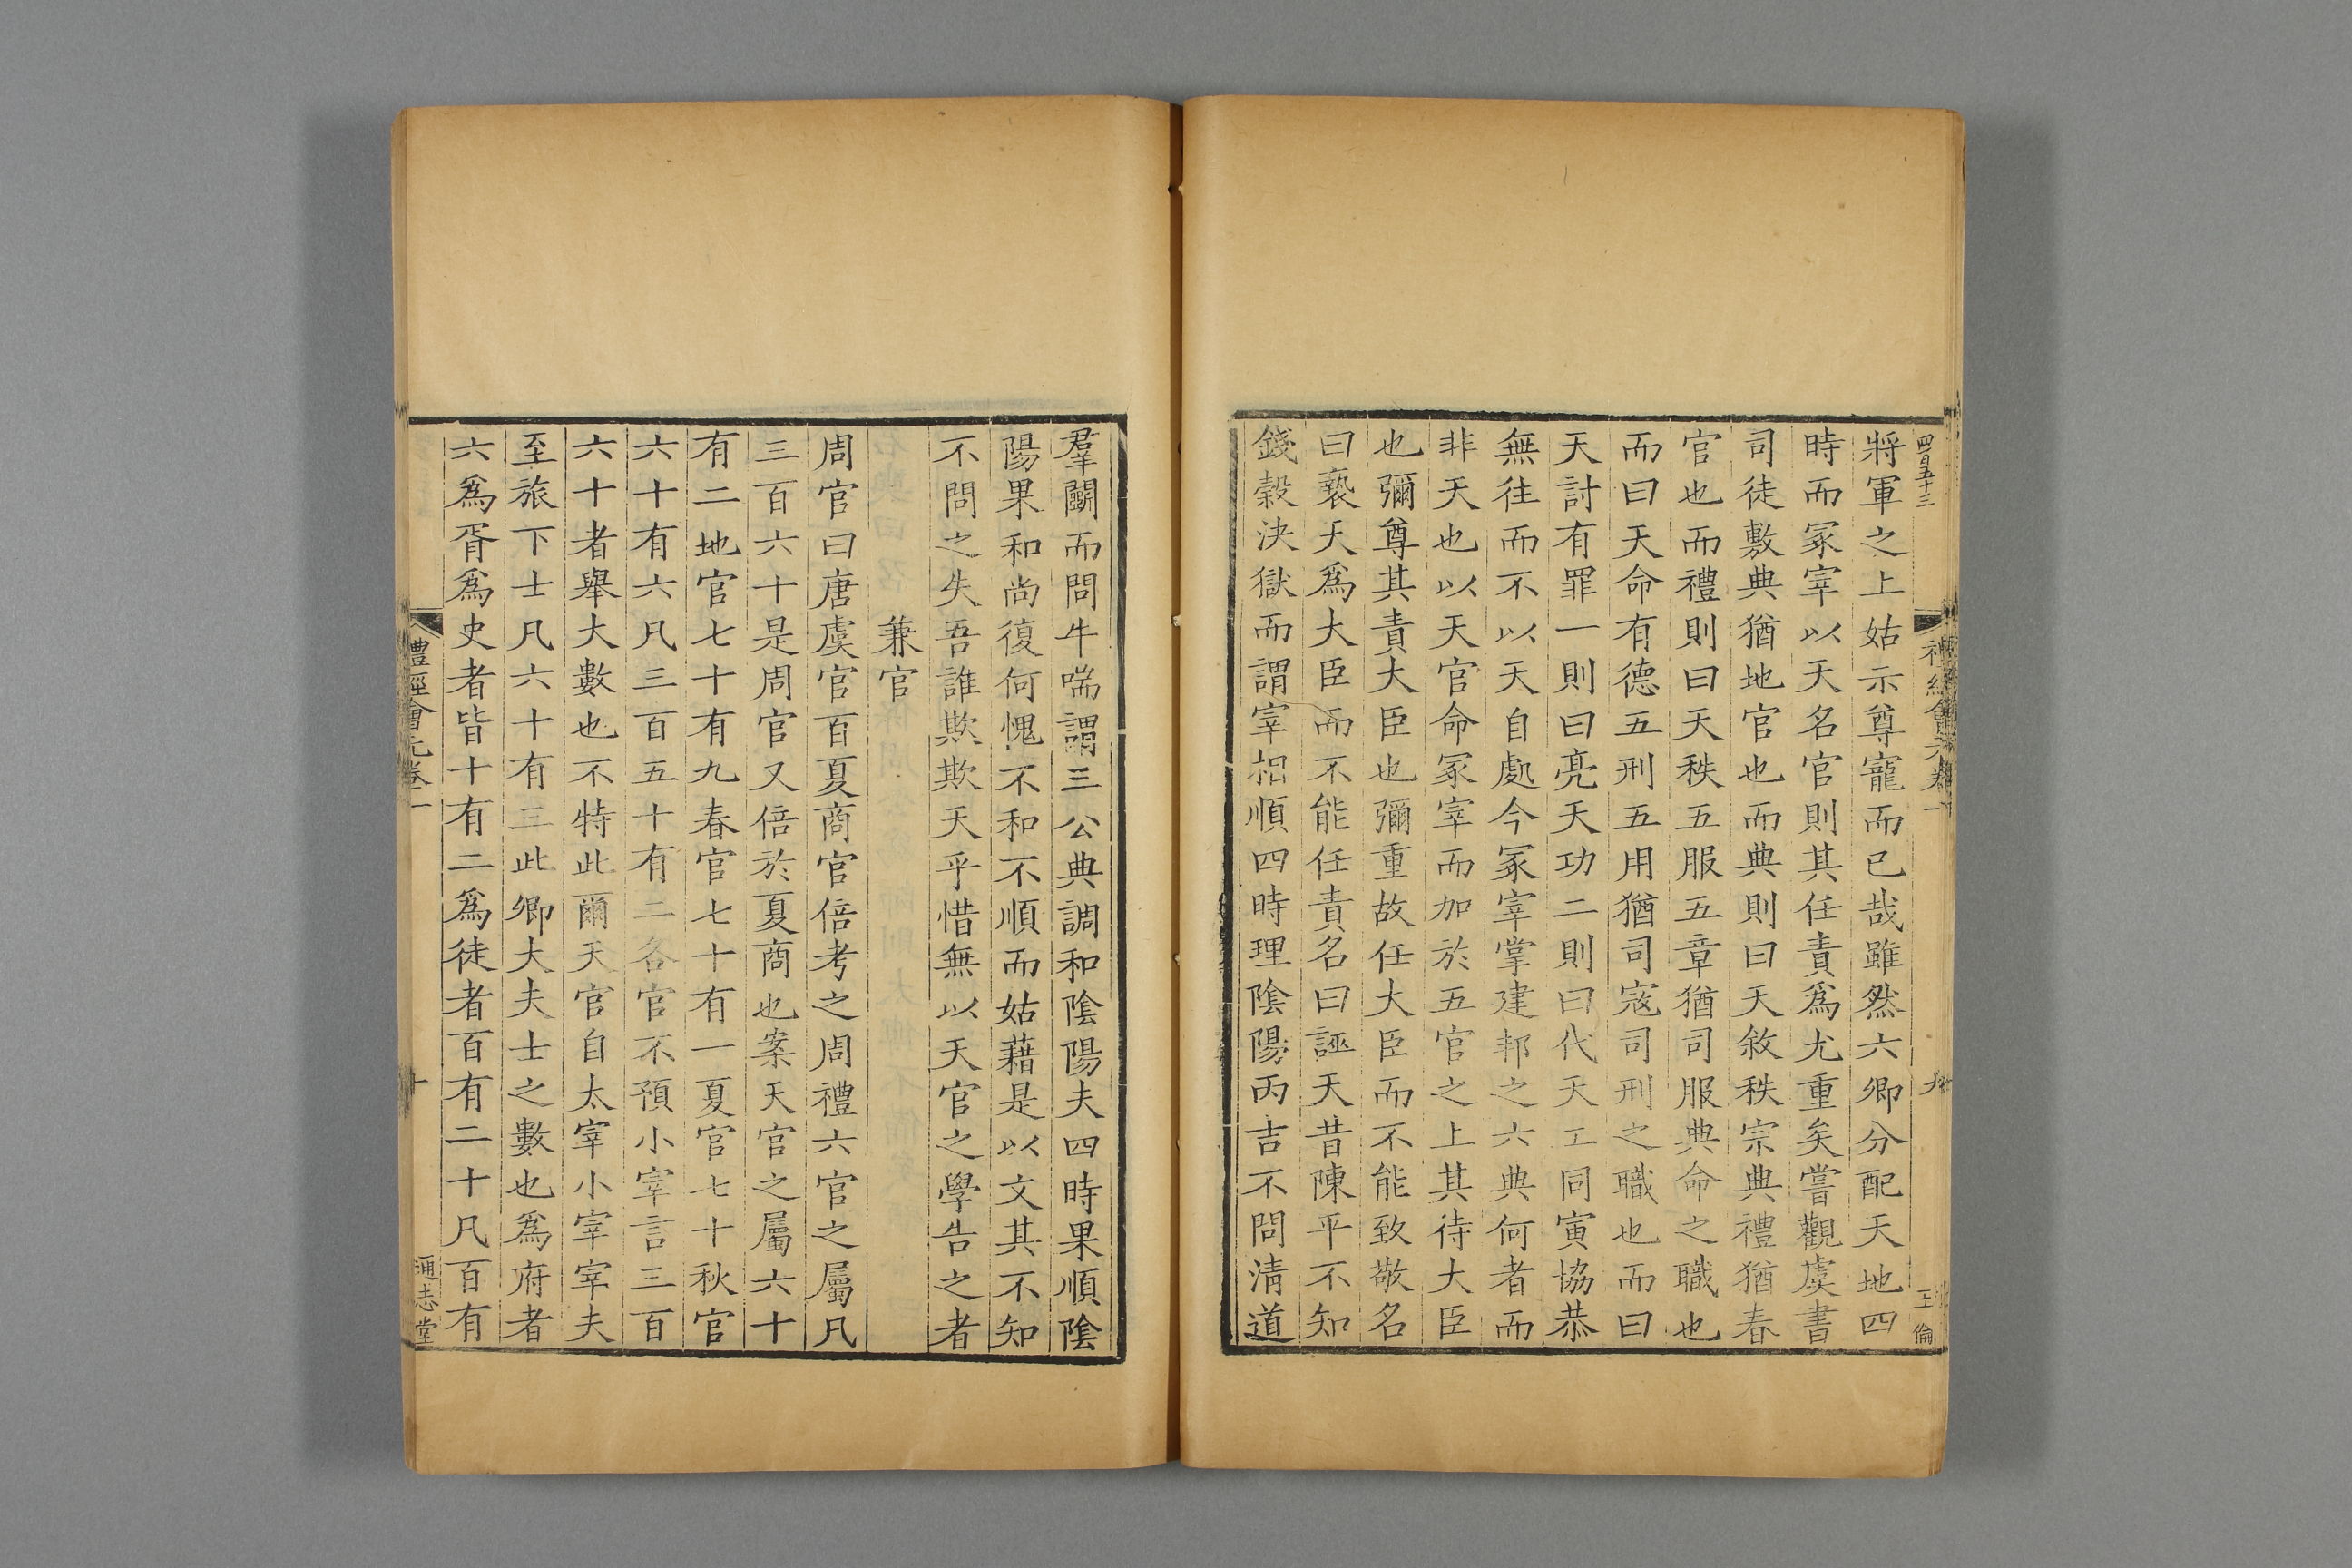 四百五十三
禮經會元卷一
九
王倫
將軍之上姑示尊寵而已哉雖然六卿分配天地四
時而冢宰以天名官則其任責爲尤重矣嘗觀虞書
司徒敷典猶地官也而典則曰天敘秩宗典禮猶春
官也而禮則曰天秩五服五章猶司服典命之職也
而曰天命有德五刑五用猶司寇司刑之職也而曰
天討有罪一則曰亮天功二則曰代天工同寅協恭
無往而不以天自處今冢宰掌建邦之六典何者而
非天也以天官命冢宰而加於五官之上其待大臣
也彌尊其責大臣也彌重故任大臣而不能致敬名
曰褻天爲大臣而不能任責名曰誣天昔陳平不知
錢穀決獄而謂宰相順四時理陰陽丙吉不問清道
羣鬭而問牛喘謂三公典調和陰陽夫四時果順陰
陽果和尚復何愧不和不順而姑藉是以文其不知
不問之失吾誰欺欺天乎惜無以天官之學告之者
兼官
周官曰唐虞官百夏商官倍考之周禮六官之屬凡
三百六十是周官又倍於夏商也案天官之屬六十
有二地官七十有九春官七十有一夏官七十秋官
六十有六凡三百五十有二各官不預小宰言三百
六十者舉大數也不特此爾天官自太宰小宰宰夫
至旅下士凡六十有三此卿大夫士之數也爲府者
六爲胥爲史者皆十有二爲徒者百有二十凡百有
禮經會元卷一
十
通志堂